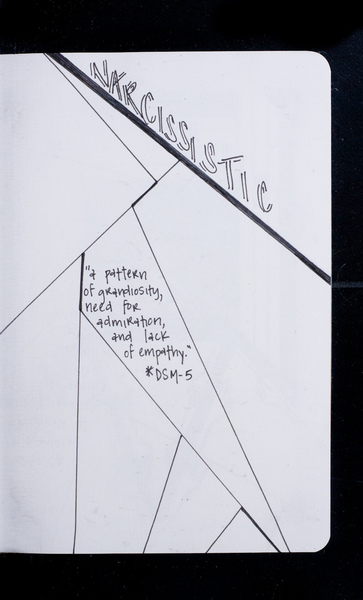 NARCISSISTIC
"a pattern
of grandiosity,
need for
admiration,
and lack
of empathy."
*DSM-5